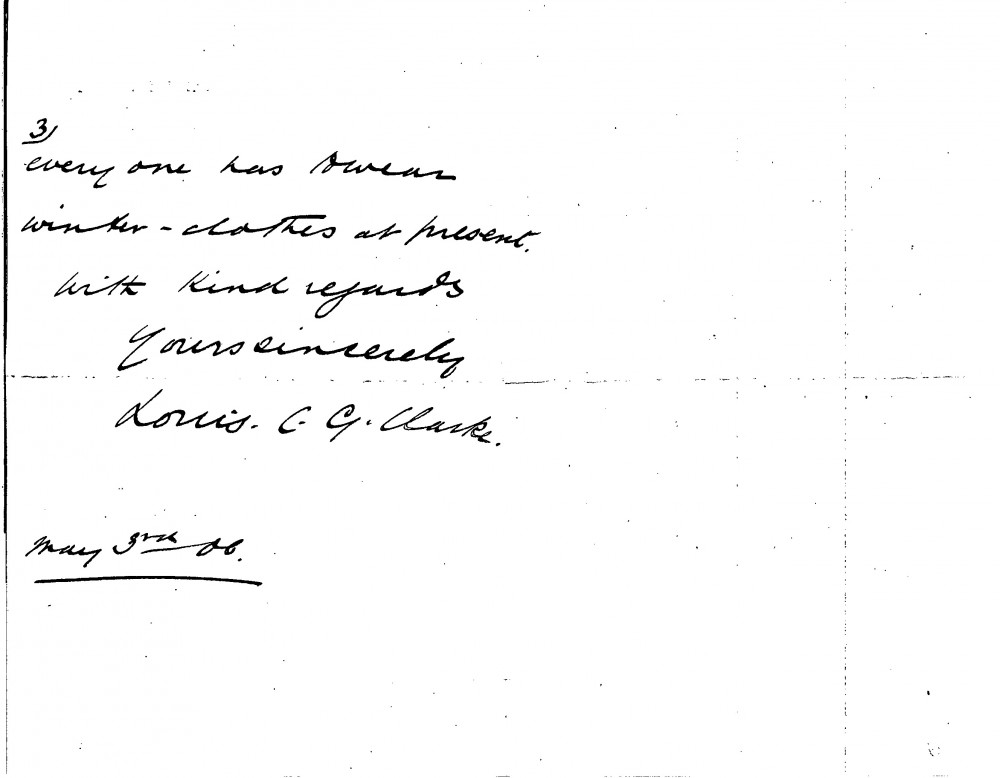 3)
every one has to wear
winter-clothes at present.
With Kind regards
Yours sincerely
Louis. C. G. Clarke.
May 3rd 06.